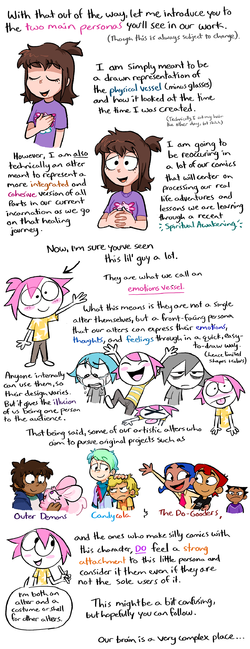 With that out of the way, let me introduce you to
the two main personas you'll see in our work.
(Though this is always subject to change).
I am simply meant to be
a drawn representation of
the physical vessel (minus glasses)
and how it looked at the time
the time I was created.
However, I am also
technically an alter
meant to represent a
more integrated and
cohesive version of all
Parts in our current
incarnation as we go
on that healing
journey.
I am going to
be reoccuring in
a lot of our comics
that will center on
processing our real
life adventures and
lessons we are learning
through a recent
"Spiritual Awakening".
Now, I'm sure you've seen
this lil' guy a lot.
They are what we call an
emotions vessel.
What this means is they are not a single
alter themselves, but a front-facing persona
that our alters can express their emotions,
thoughts, and feelings through in a quick, easy-
to-draw way.
(hence limited
shapes & colors)
Anyone internally
can use them, so
their design varies.
But it gives the illusion
of us being one person
to the audience.
That being said, some of our artistic alters who
aim to pursue original projects such as
Outer Demons
Candycola
& The Do-Gooders,
and the ones who make silly comics with
this character, DO feel a strong
attachment to this little persona and
consider it them even if they are
not the sole users of it.
I'm both an
alter and a
costume or shell
for other alters.
This might be a bit confusing,
but hopefully you can follow.
Our brain is a very complex place...